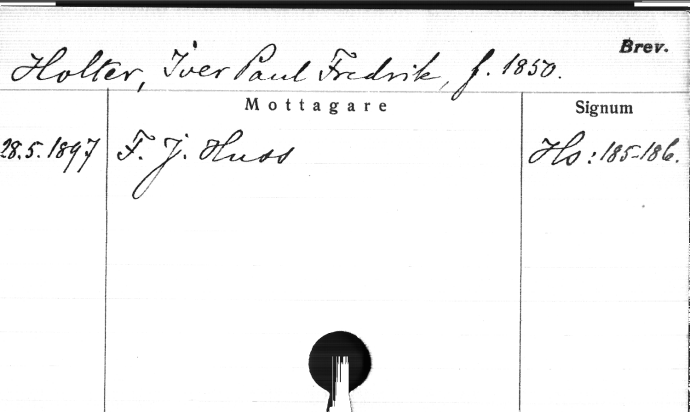 Brev.
Holter, Iver Paul Fredrik, f. 1850.
Mottagare Signum
28.5.1897 F. J. Huss Hs: 185-186.